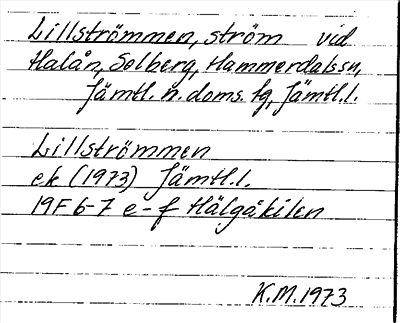 Lillströmmen, ström vid
Halån, Solberg, Hammerdals sn,
Jämtl. n. doms. fg, Jämtl.l.
Lillströmmen
ek (1973) Jämtl.l.
19F 6-7 e-f Hälgåkilen
K.M. 1973